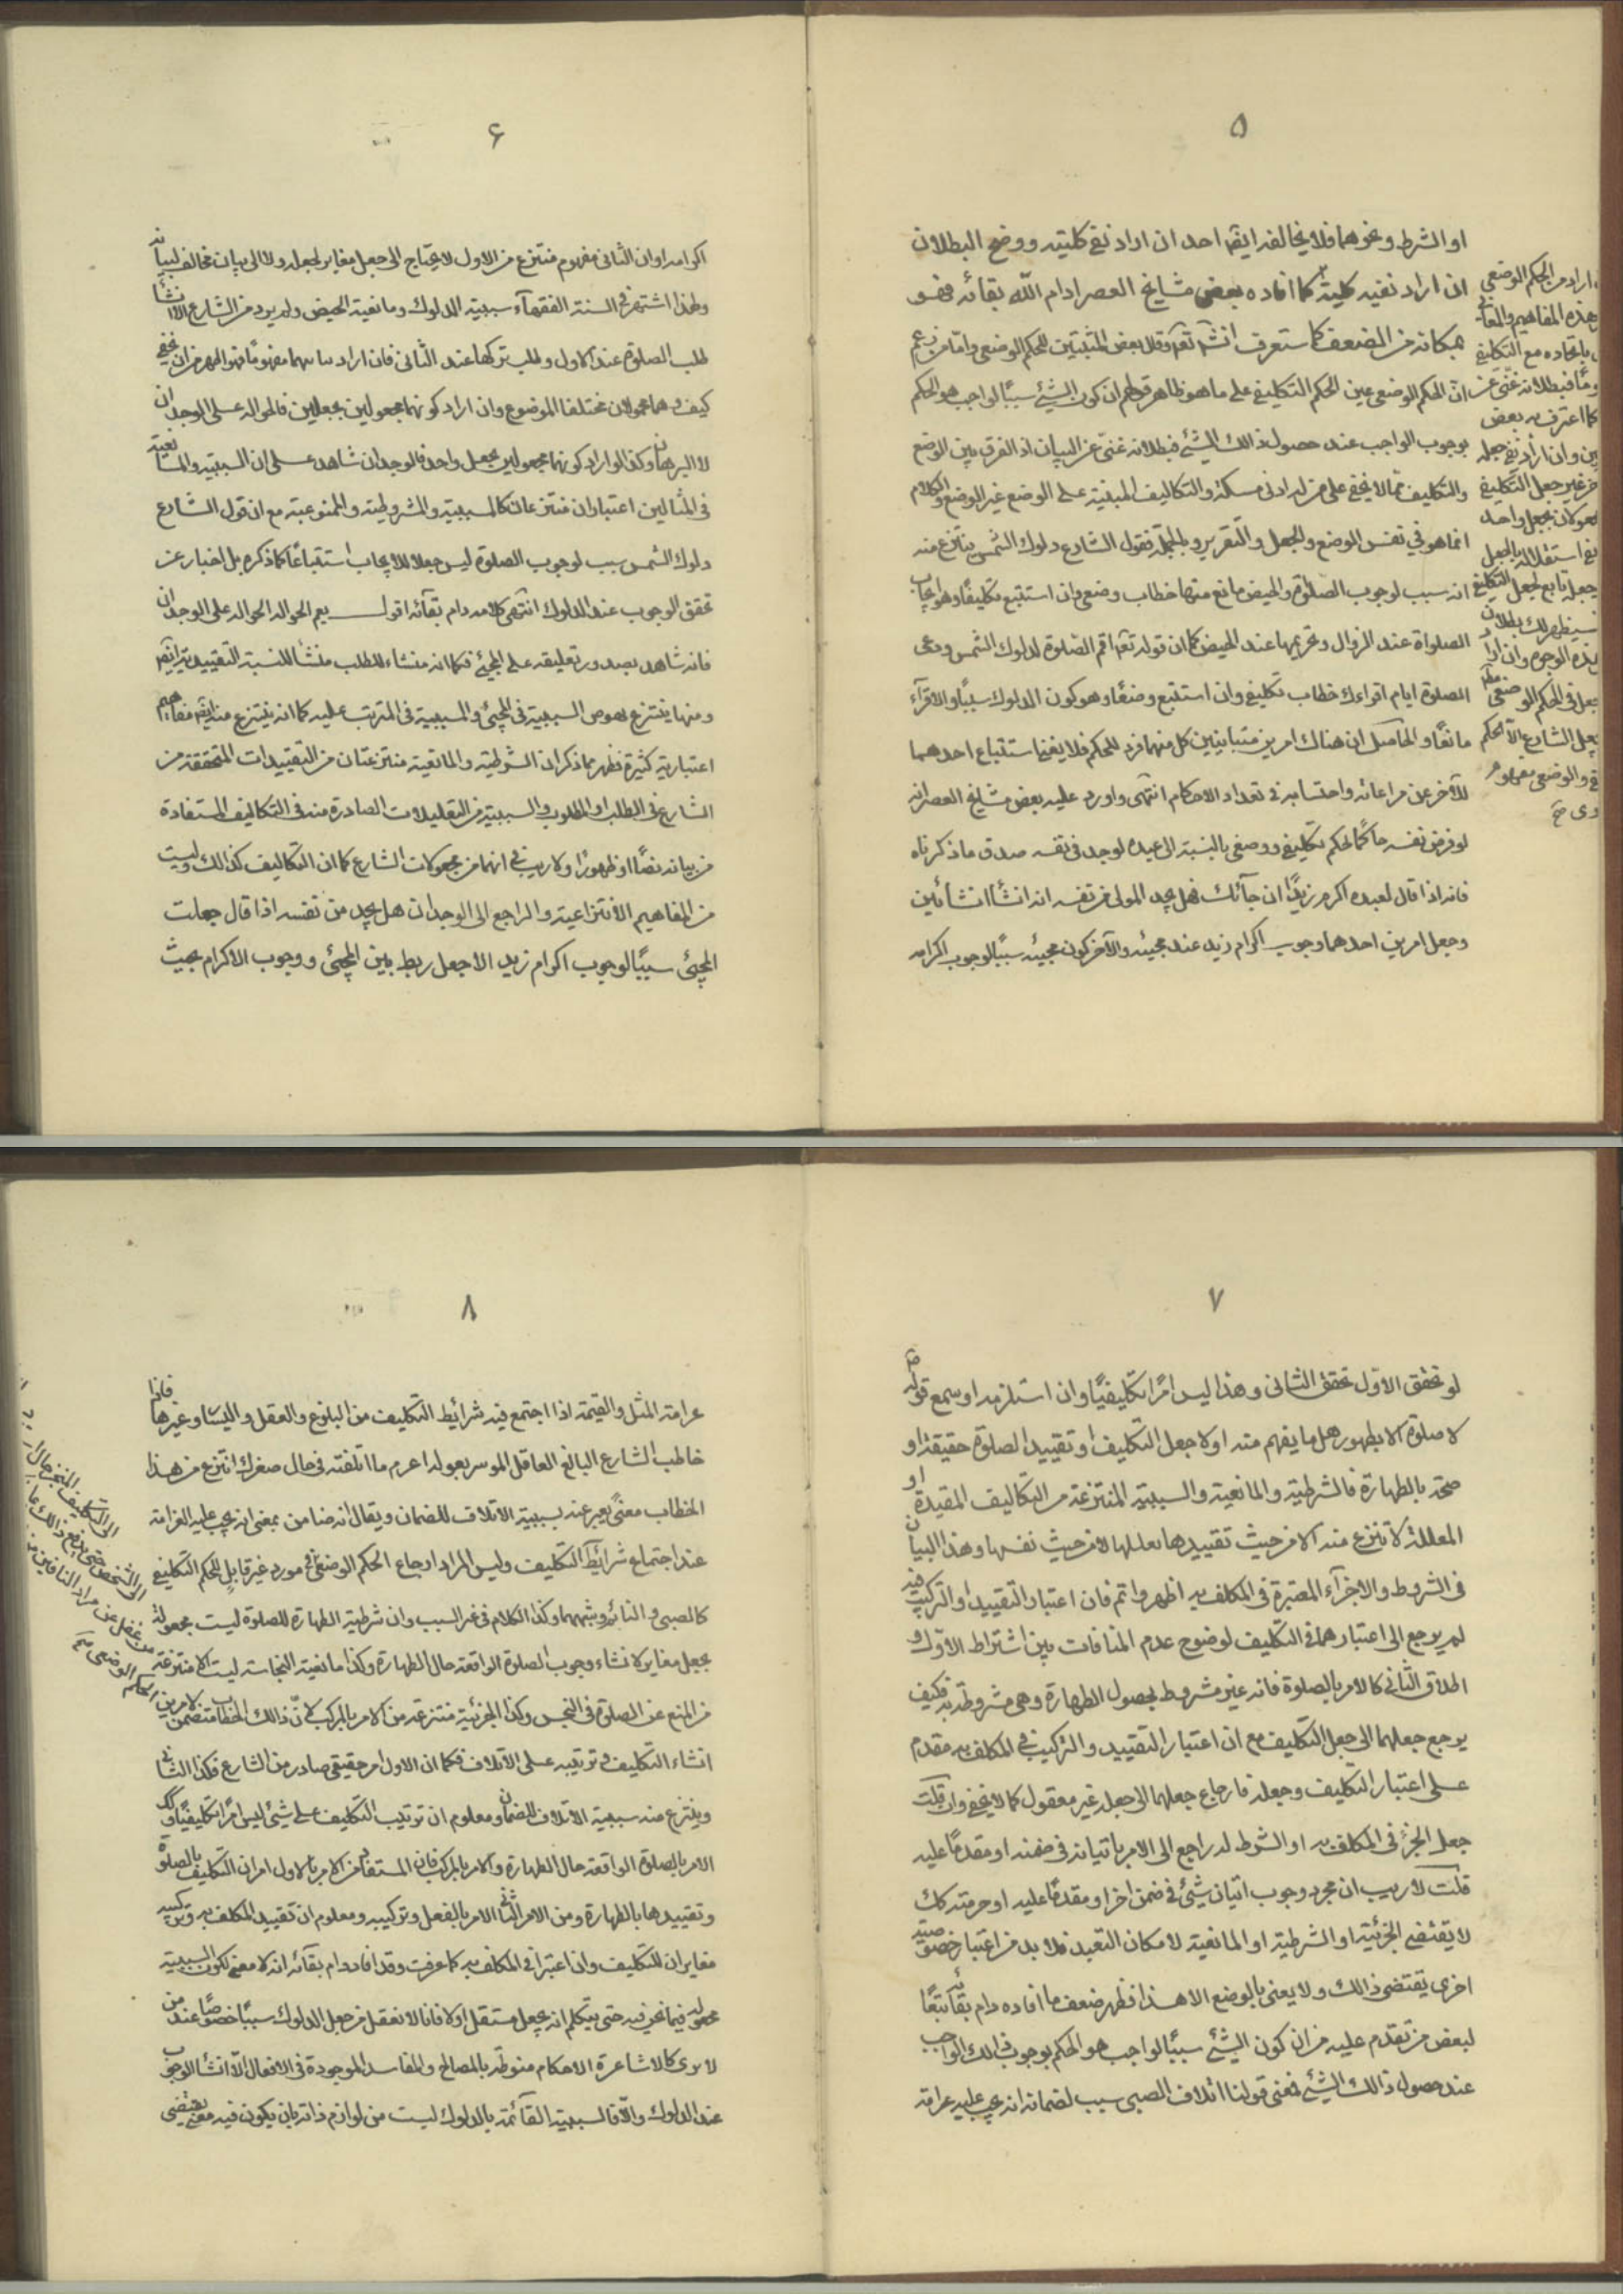 ٥
او الشرط و نحوهما فلا يخالف ايضا احد ان اراد نفى كليته ووضح البطلان
ان اراد نفيه كلية كما افاده بعض مشايخ العصر ادام الله بقائه فهو
بمكانه من الضعف كما ستعرف انشاء تعم وقال بعض المثبتين للحكم الوضعى واما من زعم
ان الحكم الوضعى عين الحكم التكليفى على ما هو ظاهر قولهم ان كون الشئ سببًا لواجب هو الحكم
بوجوب الواجب عند حصول ذالك الشئ فبطلانه غنى عن البيان اذ الفرق بين الوضع
والتكليف مما لا يخفى على من له ادنى مسكة والتكاليف المبنية على الوضع غير الوضع والكلام
انما هو فى نفس الوضع والجعل والتقرير وبالجملة فقول الشارع دلوك الشمس ينتزع منه
انه سبب لوجوب الصلوة والحيض مانع منها خطاب وضعى وان استتبع تكليفًا وهو ايجاب
الصلواة عند الزوال وتحريمها عند الحيض كما ان قوله تعم اقم الصلوة لدلوك الشمس ودعى
الصلوة ايام اقرائك خطاب تكليفى وان استتبع وضعًا وهو كون الدلوك سببًا والاقرآء
مانعًا والحاصل ان هناك امرين متباينين كل منهما فرد للحكم فلا يغنى استتباع احدهما
للآخر عن مراعاته واحتسابه فى تعداد الاحكام انتهى واورد عليه بعض مشايخ العصر انه
لو فرض نفسه حاكمًا لحكم تكليفى ووضعى بالنسبة الى عبده لوجد فى نفسه صدق ما ذكرناه
فانه اذا قال لعبده اكرم زيدًا ان جآئك فهل يجد المولى من نفسه انه انشأ انشائين
وجعل امرين احدهما وجوب اكرام زيد عند مجيئه والآخر كون مجيئه سببًا لوجوب اكرامه
اراد من الحكم الوضعى
هذه المفاهيم والمعانى
باتحاده مع التكليفى
فبطلانه غنى عن
كما اعترف به بعض
وان اراد نفى جعله
غير جعل التكليفى
بجعل واحد
نفى استقلاله بالجعل
جعله تابع لجعل التكليفى
سيظهر لك بطلان
هذه الوجوه وان اراد
جعل فى الحكم الوضعى
بجعل الشارع الا الحكم
والوضعى مفهوم
٦
اكرامه او ان الثانى مفهوم منتزع من الاول لا يحتاج الى جعل مغاير لجعله ولا الى بيان مخالف لبيانه
ولهذا اشتهر فى السنة الفقهآء سببية الدلوك ومانعية الحيض ولم يرد من الشارع الا انشاء
طلب الصلوة عند الاول وطلب تركها عند الثانى فان اراد تباينهما مفهومًا فهو اظهر من ان يخفى
كيف وهما محمولان مختلفا الموضوع وان اراد كونهما مجعولين بجعلين فالحوالة على الوجدان
لا البرهان وكذا لو اراد كونهما مجعولين بجعل واحد فالوجدان شاهد على ان السببية والمانعية
فى المثالين اعتباران منتزعان كالمسببية والشروطية والممنوعية مع ان قول الشارع
دلوك الشمس سبب لوجوب الصلوة ليس جعلا للايجاب استتباعًا كما ذكره بل اخبار عن
تحقق الوجوب عند الدلوك انتهى كلامه دام بقآئه اقول نعم الحوالة الحوالة على الوجدان
فانه شاهد بصدور تعليقه على المجيئ فكما انه منشاء للطلب منشأ للنسبة التقييدية ايضا
ومنها ينتزع خصوص السببية فى المجيئ والمسببية فى المترتب عليه كما انه ينتزع منه ايضا مفاهيم
اعتبارية كثيرة فظهر مما ذكر ان الشرطية والمانعية منتزعتان من التقييدات المتحققة من
الشارع فى الطلب او المطلوب والسببية من التعليلات الصادرة منه فى التكاليف المستفادة
من بيانه نصًا او ظهورًا ولا ريب فى انهما من مجعولات الشارع كما ان التكاليف كذالك وليست
من المفاهيم الانتزاعية والراجع الى الوجدان هل يجد من نفسه اذا قال جعلت
المجيئ سببًا لوجوب اكرام زيد الا جعل ربط بين المجيئ ووجوب الاكرام بحيث
٧
لو تحقق الاول تحقق الثانى وهذا ليس امرًا تكليفيًا وان استلزمه او سمع قوله
لا صلوة الا بطهور هل ما يفهم منه اولا جعل التكليف او تقييد الصلوة حقيقة او
صحة بالطهارة فالشرطية والمانعية والسببية المنتزعة من التكاليف المقيدة او
المعللة لا تنتزع منه الا من حيث تقييدها تعللها لا من حيث نفسها وهذا البيان
فى الشروط والاجزآء المعتبرة فى المكلف به اظهر واتم فان اعتبار التقييد او التركيب فيه
لم يرجع الى اعتبارهما فى التكليف لوضوح عدم المنافات بين اشتراط الاول و
اطلاق الثانى كالامر بالصلوة فانه غير مشروط بحصول الطهارة وهى مشروطة به فكيف
يرجع جعلهما الى جعل التكليف مع ان اعتبار التقييد والتركيب فى المكلف به مقدم
على اعتبار التكليف وجعله فارجاع جعلهما الى جعله غير معقول كما لا يخفى وان قلت
جعل الجزء فى المكلف به او الشرط له راجع الى الامر باتيانه فى ضمنه او مقدمًا عليه
قلت لا ريب ان مجرد وجوب اتيان شئ فى ضمن اخر او مقدمًا عليه او حرمته كك
لا يقتضى الجزئية او الشرطية او المانعية لامكان التعبد فلا بد من اعتبار خصوصية
اخرى يقتضى ذالك ولا يعنى بالوضع الا هذا فظهر ضعف ما افاده دام بقآئه تبعًا
لبعض من تقدم عليه من ان كون الشئ سببًا لواجب هو الحكم بوجوب ذالك الواجب
عند حصول ذالك الشئ فمعنى قولنا اتلاف الصبى سبب لضمانه انه يجب عليه غرامة
٨
غرامة المثل والقيمة اذا اجتمع فيه شرائط التكليف من البلوغ والعقل واليسار وغيرها فاذا
خاطب الشارع البالغ العاقل الموسر بقوله اغرم ما اتلفته فى حال صغرك انتزع من هذا
الخطاب معنى يعبر عنه بسببية الاتلاف للضمان ويقال انه ضامن بمعنى انه يجب عليه الغرامة
عند اجتماع شرائط التكليف وليس المراد ارجاع الحكم الوضعى فى مورد غير قابل للحكم التكليفى
كالصبى والنائم وشبههما وكذا الكلام فى غير السبب وان شرطية الطهارة للصلوة ليست مجعولة
بجعل مغاير لانشاء وجوب الصلوة الواقعة حال الطهارة وكذا مانعية النجاسة ليست الا منتزعة
من المنع عن الصلوة فى النجس وكذا الجزئية منتزعة من الامر بالمركب لان ذالك الخطاب متضمن لامرين
انشاء التكليف وترتيبه على الاتلاف فكما ان الاول امر حقيقى صادر من الشارع فكذا الثانى
وينتزع منه سببية الاتلاف للضمان ومعلوم ان ترتيب التكليف على شئ ليس امرًا تكليفيًا وكك
الامر بالصلوة الواقعة حال الطهارة والامر بالمركب فان المستفاد من الامر بالاول امران التكليف بالصلوة
وتقييدها بالطهارة ومن الامر الثانى الامر بالفعل وتركيبه ومعلوم ان تقييد المكلف به وتركيبه
مغايران للتكليف وان اعتبرا فى المكلف به كما عرفت وقد افاد دام بقآئه انه لا معنى لكون السببية
مجعولة فيما نحن فيه حتى يتكلم انه بجعل مستقل اولا فانا لا نعقل من جعل الدلوك سببًا خصوصًا عند من
لا يرى كالاشاعرة الاحكام منوطة بالمصالح والمفاسد الموجودة فى الافعال الا انشاء الوجوب
عند الدلوك والا فالسببية القآئمة بالدلوك ليست من لوازم ذاته بان يكون فيه معنى يقتضى
الى التكليف المنجز حال
الى الشخص حتى يدفع ذالك
من غفل عن مراد النافين من
الحكم الوضعى